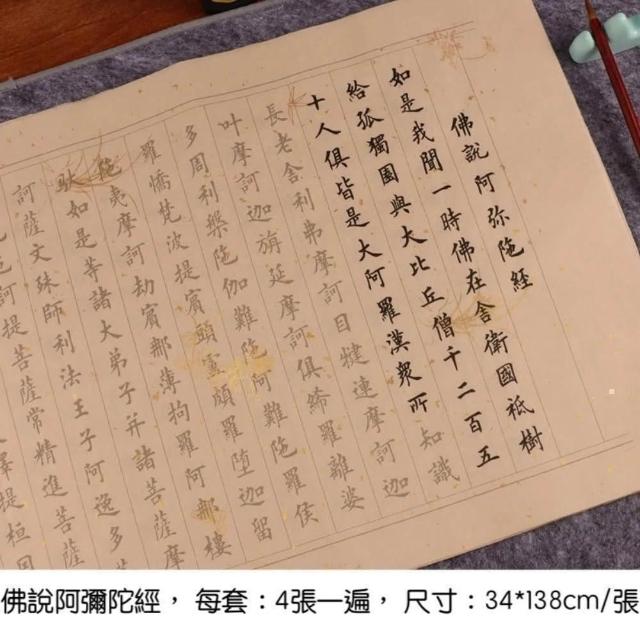 佛說阿弥陁經
如是我聞一時佛在舍衛國祇樹
給孤獨園與大比丘僧千二百五
十人俱皆是大阿羅漢衆所知識
長老舍利弗摩訶目犍連摩訶迦
叶摩訶迦旃延摩訶俱絺羅離婆
多周利槃陁伽難陁阿難陁羅侯
羅憍梵波提賓頭盧頗羅堕迦留
陁夷摩訶劫賓那薄拘羅阿那樓
馱如是等諸大弟子并諸菩薩摩
訶薩文殊師利法王子阿逸多菩
陁訶提菩薩常精進菩薩
釋提桓因
佛說阿彌陀經， 每套：4張一遍， 尺寸：34*138cm/張